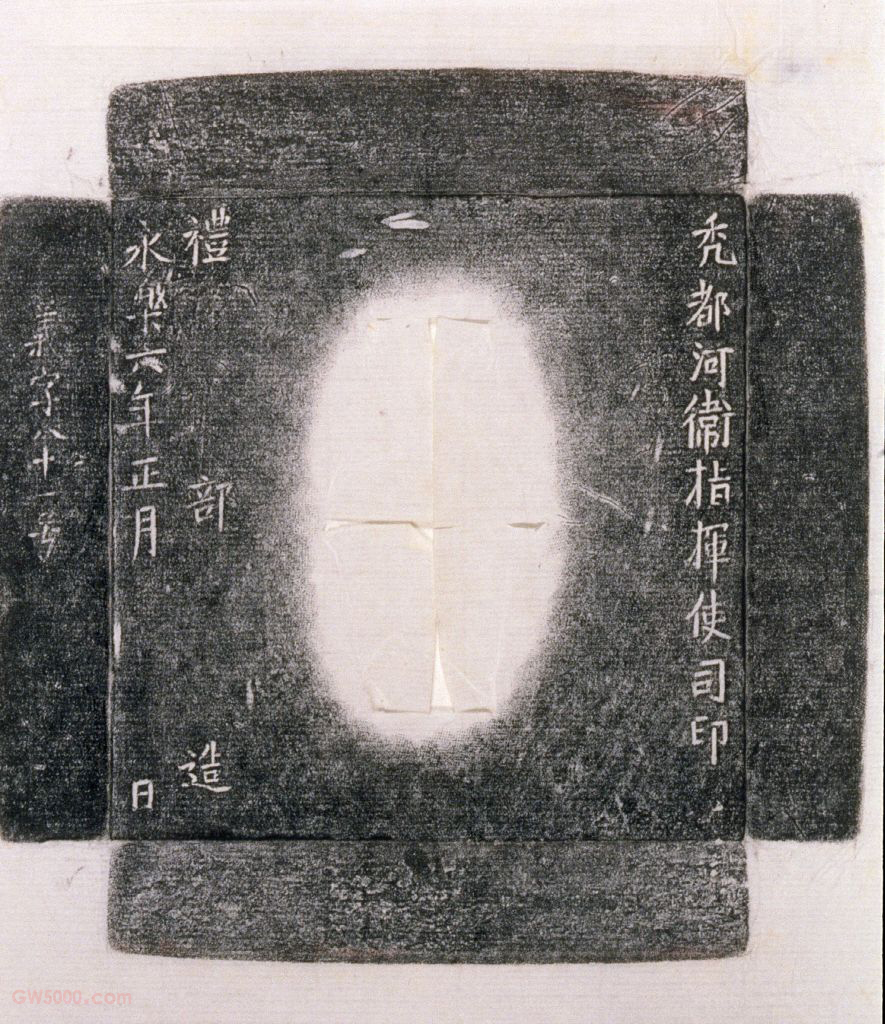 秃都河衛指揮使司印
禮部造
永樂六年正月 日
字八十一号
GW5000.com